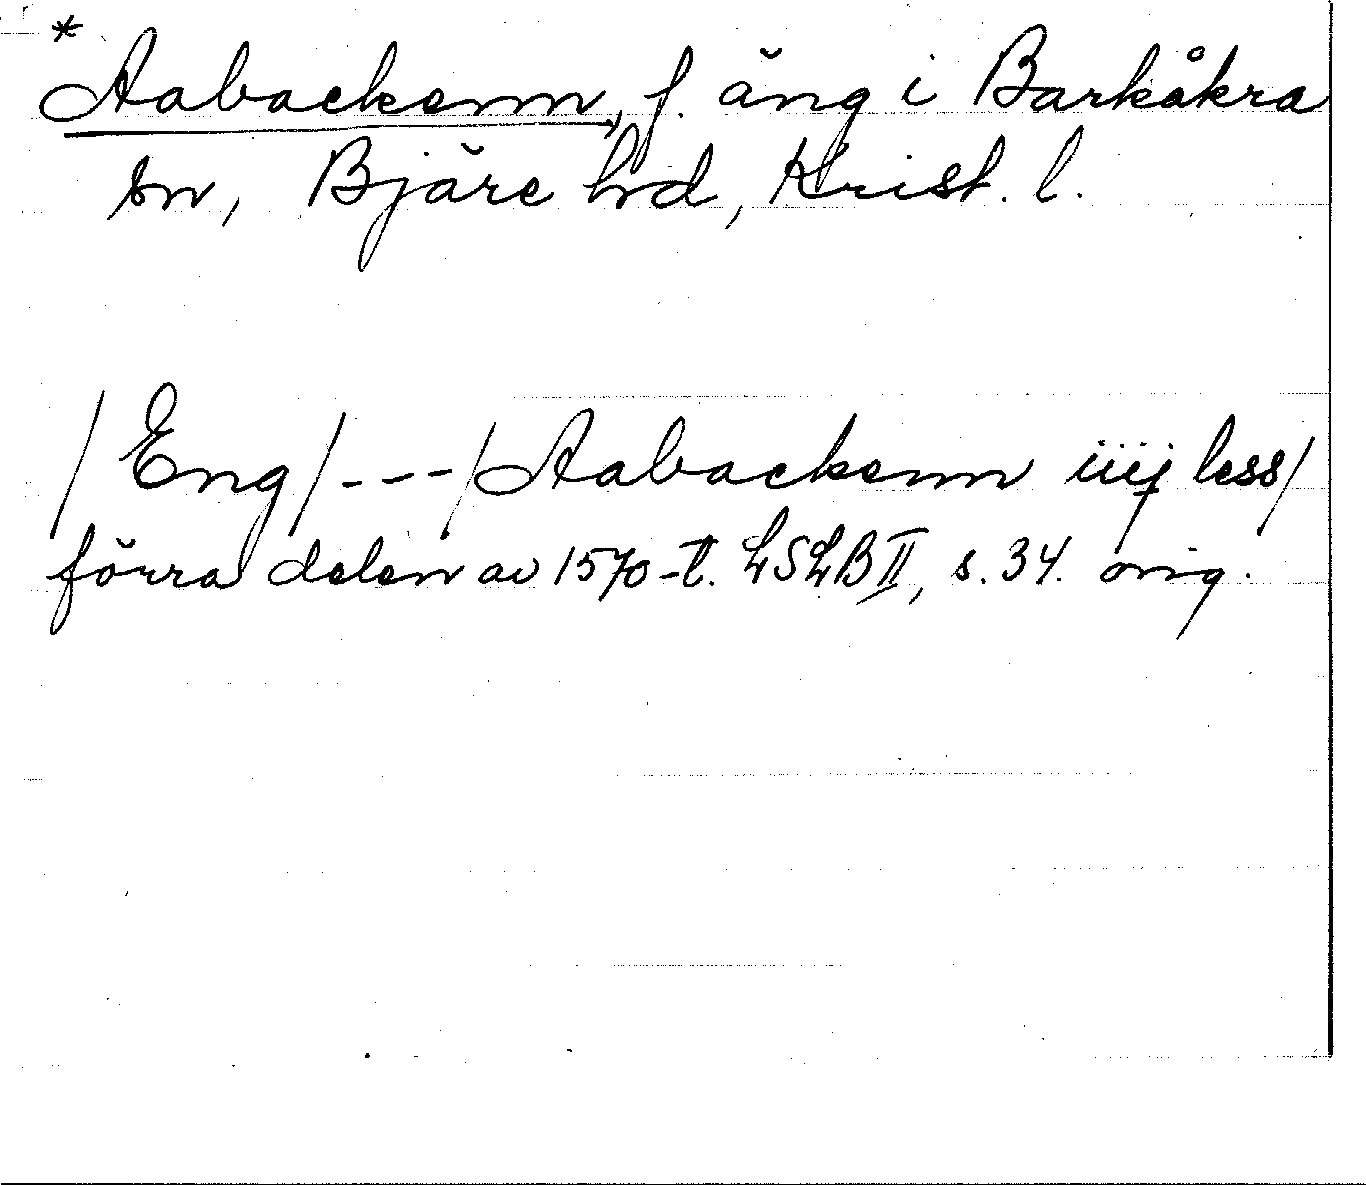 *
Aabackenn, f. äng i Barkåkra
sn, Bjäre hd, Krist. l.
/Eng/ --- /Aabackenn iiij less/
förra delen av 1570-t. LSLB II, s. 34. orig.